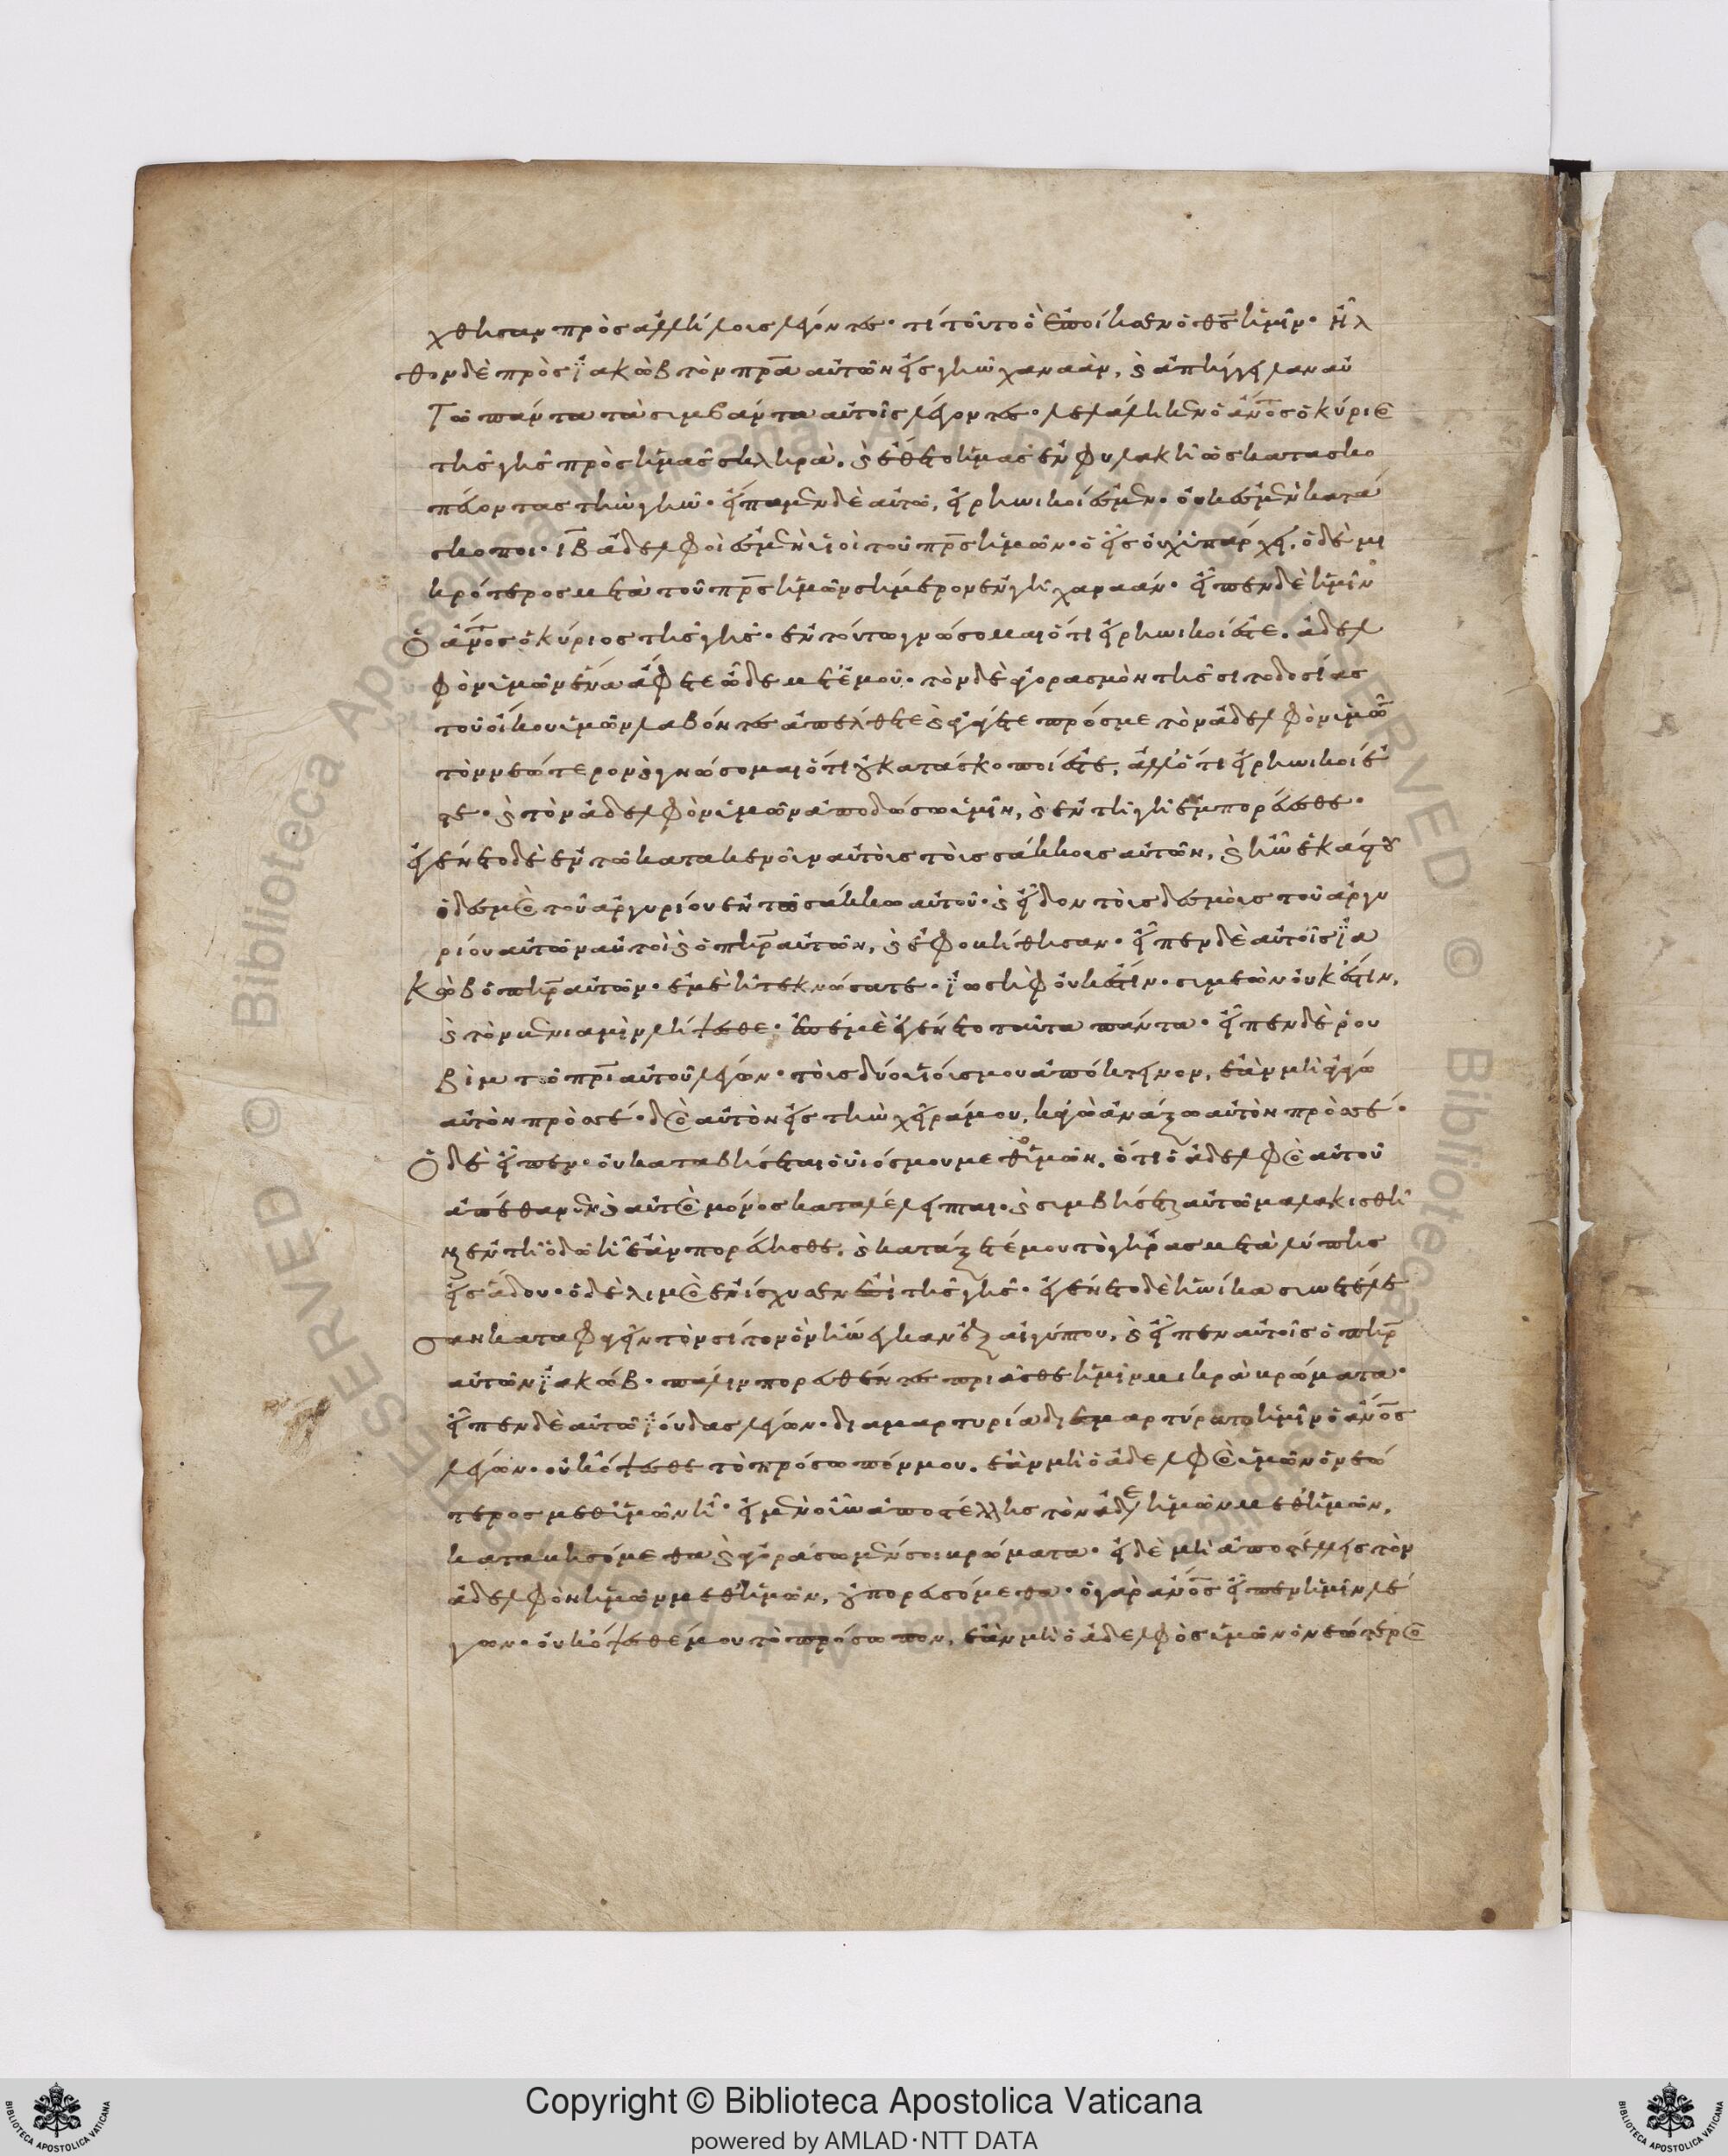 χθησαν πρὸς ἀλλήλοις λέγοντες· τί τοῦτο ὃ ἐποίησεν ὁ θ̅ς̅ ἡμῖν· ἦλ
θον δὲ πρὸς ϊακὼβ τὸν πρ̅α̅ αὐτῶν εἰς γῆν χαναὰν, ϗ ἀπήγγειλαν αὐ
τῶ πάντα τὰ συμβάντα αὐτοῖς λέγοντες· λελάληκεν ὁ ἄν̅ο̅ς̅ ὁ κύριος
τῆς γῆς πρὸς ἡμᾶς σκληρὰ. ϗ ἔθετο ἡμᾶς ἐν φυλακῆ ὡς κατασκο
πεύοντας τὴν γῆν· εἴπαμεν δὲ αὐτῶ, εἰρηνικοί ἐσμεν· οὐκ ἐσμὲν κατά
σκοποι· ι̅β̅ ἀδελφοί ἐσμὲν υἱοὶ τοῦ πρ̅ς̅ ἡμῶν· ὁ εἷς οὐχ ὑπάρχει, ὁ δὲ μι
κρότερος μετὰ τοῦ πρ̅ς̅ ἡμῶν σήμερον ἐν γῆ χαναάν· εἶπεν δὲ ἡμῖν
ὁ ἄν̅ο̅ς̅ ὁ κύριος τῆς γῆς· ἐν τούτω γνώσομαι ὅτι εἰρηνικοί ἐστε. ἀδελ
φὸν ὑμῶν ἕνα ἄφετε ὧδε μετ' ἐμοῦ· τὸν δὲ ἀγορασμὸν τῆς σιτοδοσίας
τοῦ οἴκου ὑμῶν λαβόντες ἀπέλθετε ϗ ἀγάγετε πρός με τὸν ἀδελφὸν ὑμῶν
τὸν νεώτερον ϗ γνώσομαι ὅτι οὐ κατάσκοποί ἐστε, ἀλλ' ὅτι εἰρηνικοί ἐ
στε· ϗ τὸν ἀδελφὸν ὑμῶν ἀποδώσω ὑμῖν, ϗ ἐν τῆ γῆ ἐμπορεύεσθε·
ἐγένετο δὲ ἐν τῶ κατακενοῖν αὐτοὺς τοὺς σάκκους αὐτῶν, ϗ ἦν ἑκάστου
ὁ δεσμὸς τοῦ ἀργυρίου ἐν τῶ σάκκω αὐτοῦ· ϗ εἶδον τοὺς δεσμοὺς τοῦ ἀργυ
ρίου αὐτῶν αὐτοὶ ϗ ὁ πη̅ρ̅ αὐτῶν, ϗ ἐφοβήθησαν· εἶπεν δὲ αὐτοῖς ϊα
κὼβ ὁ πη̅ρ̅ αὐτῶν· ἐμὲ ἠτεκνώσατε· ϊωσὴφ οὐκ ἔστιν· συμεὼν οὐκ ἔστιν,
ϗ τὸν βενιαμὶν λήψεσθε· ἐπ' ἐμὲ ἐγένετο ταῦτα πάντα· εἶπεν δὲ ρου
βὶμ τῶ πρ̅ι̅ αὐτοῦ λέγων· τοὺς δύο υἱούς μου ἀπόκτεινον, ἐὰν μὴ ἀγάγω
αὐτὸν πρὸς σέ· δὸς αὐτὸν εἰς τὴν χεῖρά μου, κἀγὼ ἀνάξω αὐτὸν πρὸς σέ·
ὁ δὲ εἶπεν· οὐ καταβήσεται ὁ υἱός μου μεθ' ὑμῶν. ὅτι ὁ ἀδελφὸς αὐτοῦ
ἀπέθανεν ϗ αὐτὸς μόνος καταλέλειπται· ϗ συμβήσεται αὐτῶ μαλακισθῆ
ναι ἐν τῆ ὁδῶ ἧ ἐὰν πορεύησθε. ϗ κατάξετέ μου τὸ γῆρας μετὰ λύπης
εἰς ἅδου· ὁ δὲ λιμὸς ἐνίσχυσεν ἐπὶ τῆς γῆς· ἐγένετο δὲ ἡνίκα συνετέλε
σαν καταφαγεῖν τὸν σῖτον ὃν ἤνεγκαν ἐξ αἰγύπτου, ϗ εἶπεν αὐτοῖς ὁ πη̅ρ̅
αὐτῶν ϊακώβ· πάλιν πορευθέντες πρίασθε ἡμῖν μικρὰ βρώματα·
εἶπεν δὲ αὐτῶ ϊούδας λέγων· διαμαρτυρία διαμαρτύρατο ἡμῖν ὁ ἄν̅ο̅ς̅
λέγων· οὐκ ὄψεσθε τὸ πρόσωπόν μου. ἐὰν μὴ ὁ ἀδελφὸς ὑμῶν ὁ νεώ
τερος μεθ' ὑμῶν ἦ· εἰ μὲν οὖν ἀποστέλλης τὸν ἀδελ ἡμῶν μεθ' ἡμῶν,
καταβησόμεθα ϗ ἀγοράσωμέν σοι βρώματα· εἰ δὲ μὴ ἀποστέλλεις τὸν
ἀδελφὸν ἡμῶν μεθ' ἡμῶν, οὐ πορευσόμεθα· ὁ γὰρ ἄν̅ο̅ς̅ εἶπεν ἡμῖν λέ
γων· οὐκ ὄψεσθέ μου τὸ πρόσωπον, ἐὰν μὴ ὁ ἀδελφὸς ὑμῶν ὁ νεώτερος
Copyright © Biblioteca Apostolica Vaticana
powered by AMLAD·NTT DATA